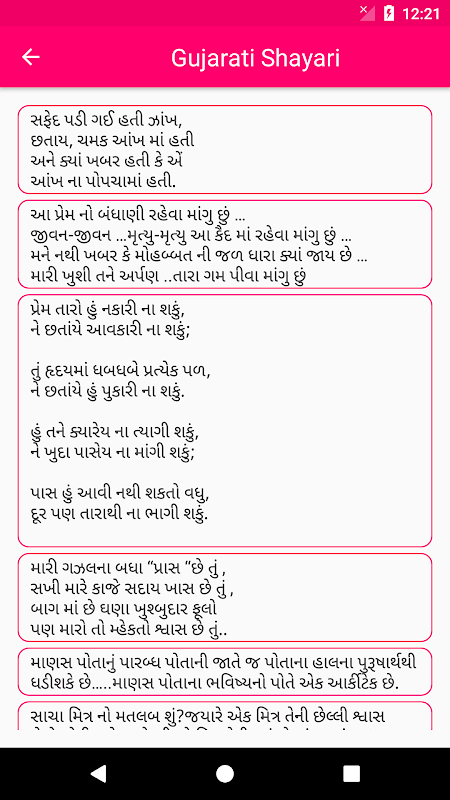 12:21
Gujarati Shayari
સફેદ પડી ગઈ હતી ઝાંખ,
છતાય, ચમક આંખ માં હતી
અને ક્યાં ખબર હતી કે એં
આંખ ના પોપચામાં હતી.
આ પ્રેમ નો બંધાણી રહેવા માંગુ છું ...
જીવન-જીવન ...મૃત્યુ-મૃત્યુ આ કૈદ માં રહેવા માંગુ છું ...
મને નથી ખબર કે મોહબ્બત ની જળ ધારા ક્યાં જાય છે ...
મારી ખુશી તને અર્પણ ..તારા ગમ પીવા માંગુ છું
પ્રેમ તારો હું નકારી ના શકું,
ને છતાંયે આવકારી ના શકું;
તું હૃદયમાં ધબધબે પ્રત્યેક પળ,
ને છતાંયે હું પુકારી ના શકું.
હું તને ક્યારેય ના ત્યાગી શકું,
ને ખુદા પાસેય ના માંગી શકું;
પાસ હું આવી નથી શકતો વધુ,
દૂર પણ તારાથી ના ભાગી શકું.
મારી ગઝલના બધા “પ્રાસ “છે તું ,
સખી મારે કાજે સદાય ખાસ છે તું ,
બાગ માં છે ઘણા ખુશ્બુદાર ફૂલો
પણ મારો તો મ્હેકતો શ્વાસ છે તું..
માણસ પોતાનું પારબ્ધ પોતાની જાતે જ પોતાના હાલના પુરૂષાર્થથી
ઘડીશકે છે.....માણસ પોતાના ભવિષ્યનો પોતે એક આર્કીટેક છે.
સાચા મિત્ર નો મતલબ શું?જયારે એક મિત્ર તેની છેલ્લી શ્વાસ